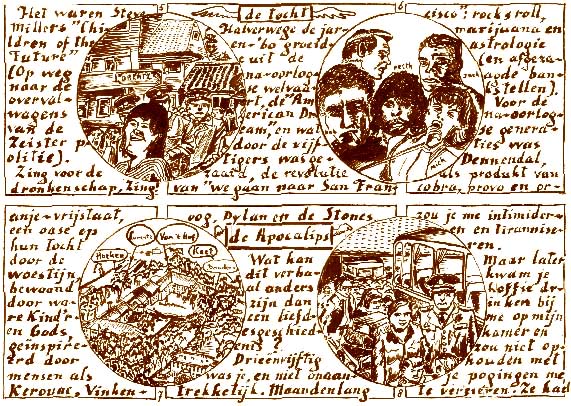 5
de tocht
6
Het waren Steve
Millers "Chi-
ldren of the
Future"
(Op weg
naar de
overval-
wagens
van de
Zeister p
olitie).
Zing voor de
dronkenschap, zing!
Halverwege de jar-
en-'60 groeid-
uit de
na-oorlog-
se welvaa-
rt, de "Am-
erican Dr-
eam", en wat
door de vijf-
tigers was ge-
zaaid, de revolutie
van "we gaan naar San Fran-
cisco": rock&roll,
marijuana en
astrologie
(en afgeza-
agde ban-
kstellen).
Voor de
na-oorlog-
se genera-
ties was
Dennendal,
als produkt van
cobra, provo en or-
anje-vrijstaat,
een oase op
hun tocht
door de
woestijn
bewoond
door wa-
re Kinder-
en Gods
geinspire-
erd door
mensen als
Kerouac, Vinken-
oog, Dylan en de Stones
de Apocalips
Wat kan
dit verha-
al anders
zijn dan
een liefd-
esgeschied-
enis?
Drieënvijftig
was je, en niet onaan-
trekkelijk. Maandenlang
zou je me intimider-
en en tirannise-
ren.
Maar later
kwam je
koffie dr-
inken bij
me op mijn
kamer en
zou niet op-
houden met
je pogingen me
te versieren. Ze had
7
8